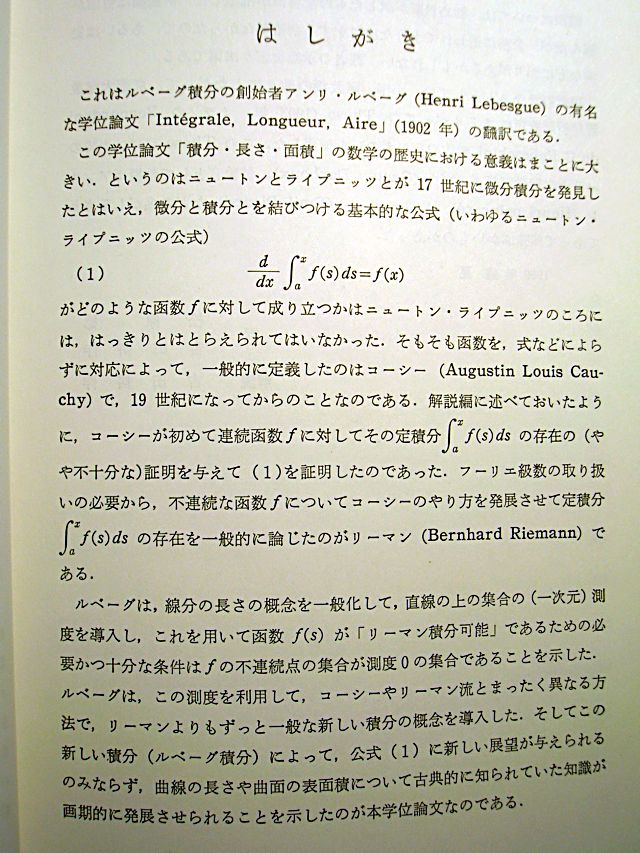 はしがき
これはルベーグ積分の創始者アンリ・ルベーグ (Henri Lebesgue) の有名
な学位論文「Intégrale, Longueur, Aire」(1902 年) の飜訳である.
この学位論文「積分・長さ・面積」の数学の歴史における意義はまことに大
きい. というのはニュートンとライプニッツとが 17 世紀に微分積分を発見し
たとはいえ, 微分と積分とを結びつける基本的な公式 (いわゆるニュートン・
ライプニッツの公式)
(1) d/dx ∫_a^x f(s)ds=f(x)
がどのような函数 f に対して成り立つかはニュートン・ライプニッツのころに
は, はっきりとはとらえられてはいなかった. そもそも函数を, 式などによら
ずに対応によって, 一般的に定義したのはコーシー (Augustin Louis Cau-
chy) で, 19 世紀になってからのことなのである. 解説編に述べておいたよう
に, コーシーが初めて連続函数 f に対してその定積分∫_a^x f(s)ds の存在の (や
や不十分な)証明を与えて (1)を証明したのであった. フーリエ級数の取り扱
いの必要から, 不連続な函数 f についてコーシーのやり方を発展させて定積分
∫_a^x f(s)ds の存在を一般的に論じたのがリーマン (Bernhard Riemann) で
ある.
ルベーグは, 線分の長さの概念を一般化して, 直線の上の集合の (一次元) 測
度を導入し, これを用いて函数 f(s) が「リーマン積分可能」であるための必
要かつ十分な条件は f の不連続点の集合が測度 0 の集合であることを示した.
ルベーグは, この測度を利用して, コーシーやリーマン流とまったく異なる方
法で, リーマンよりもずっと一般な新しい積分の概念を導入した. そしてこの
新しい積分 (ルベーグ積分) によって, 公式 (1) に新しい展望が与えられる
のみならず, 曲線の長さや曲面の表面積について古典的に知られていた知識が
画期的に発展させられることを示したのが本学位論文なのである.